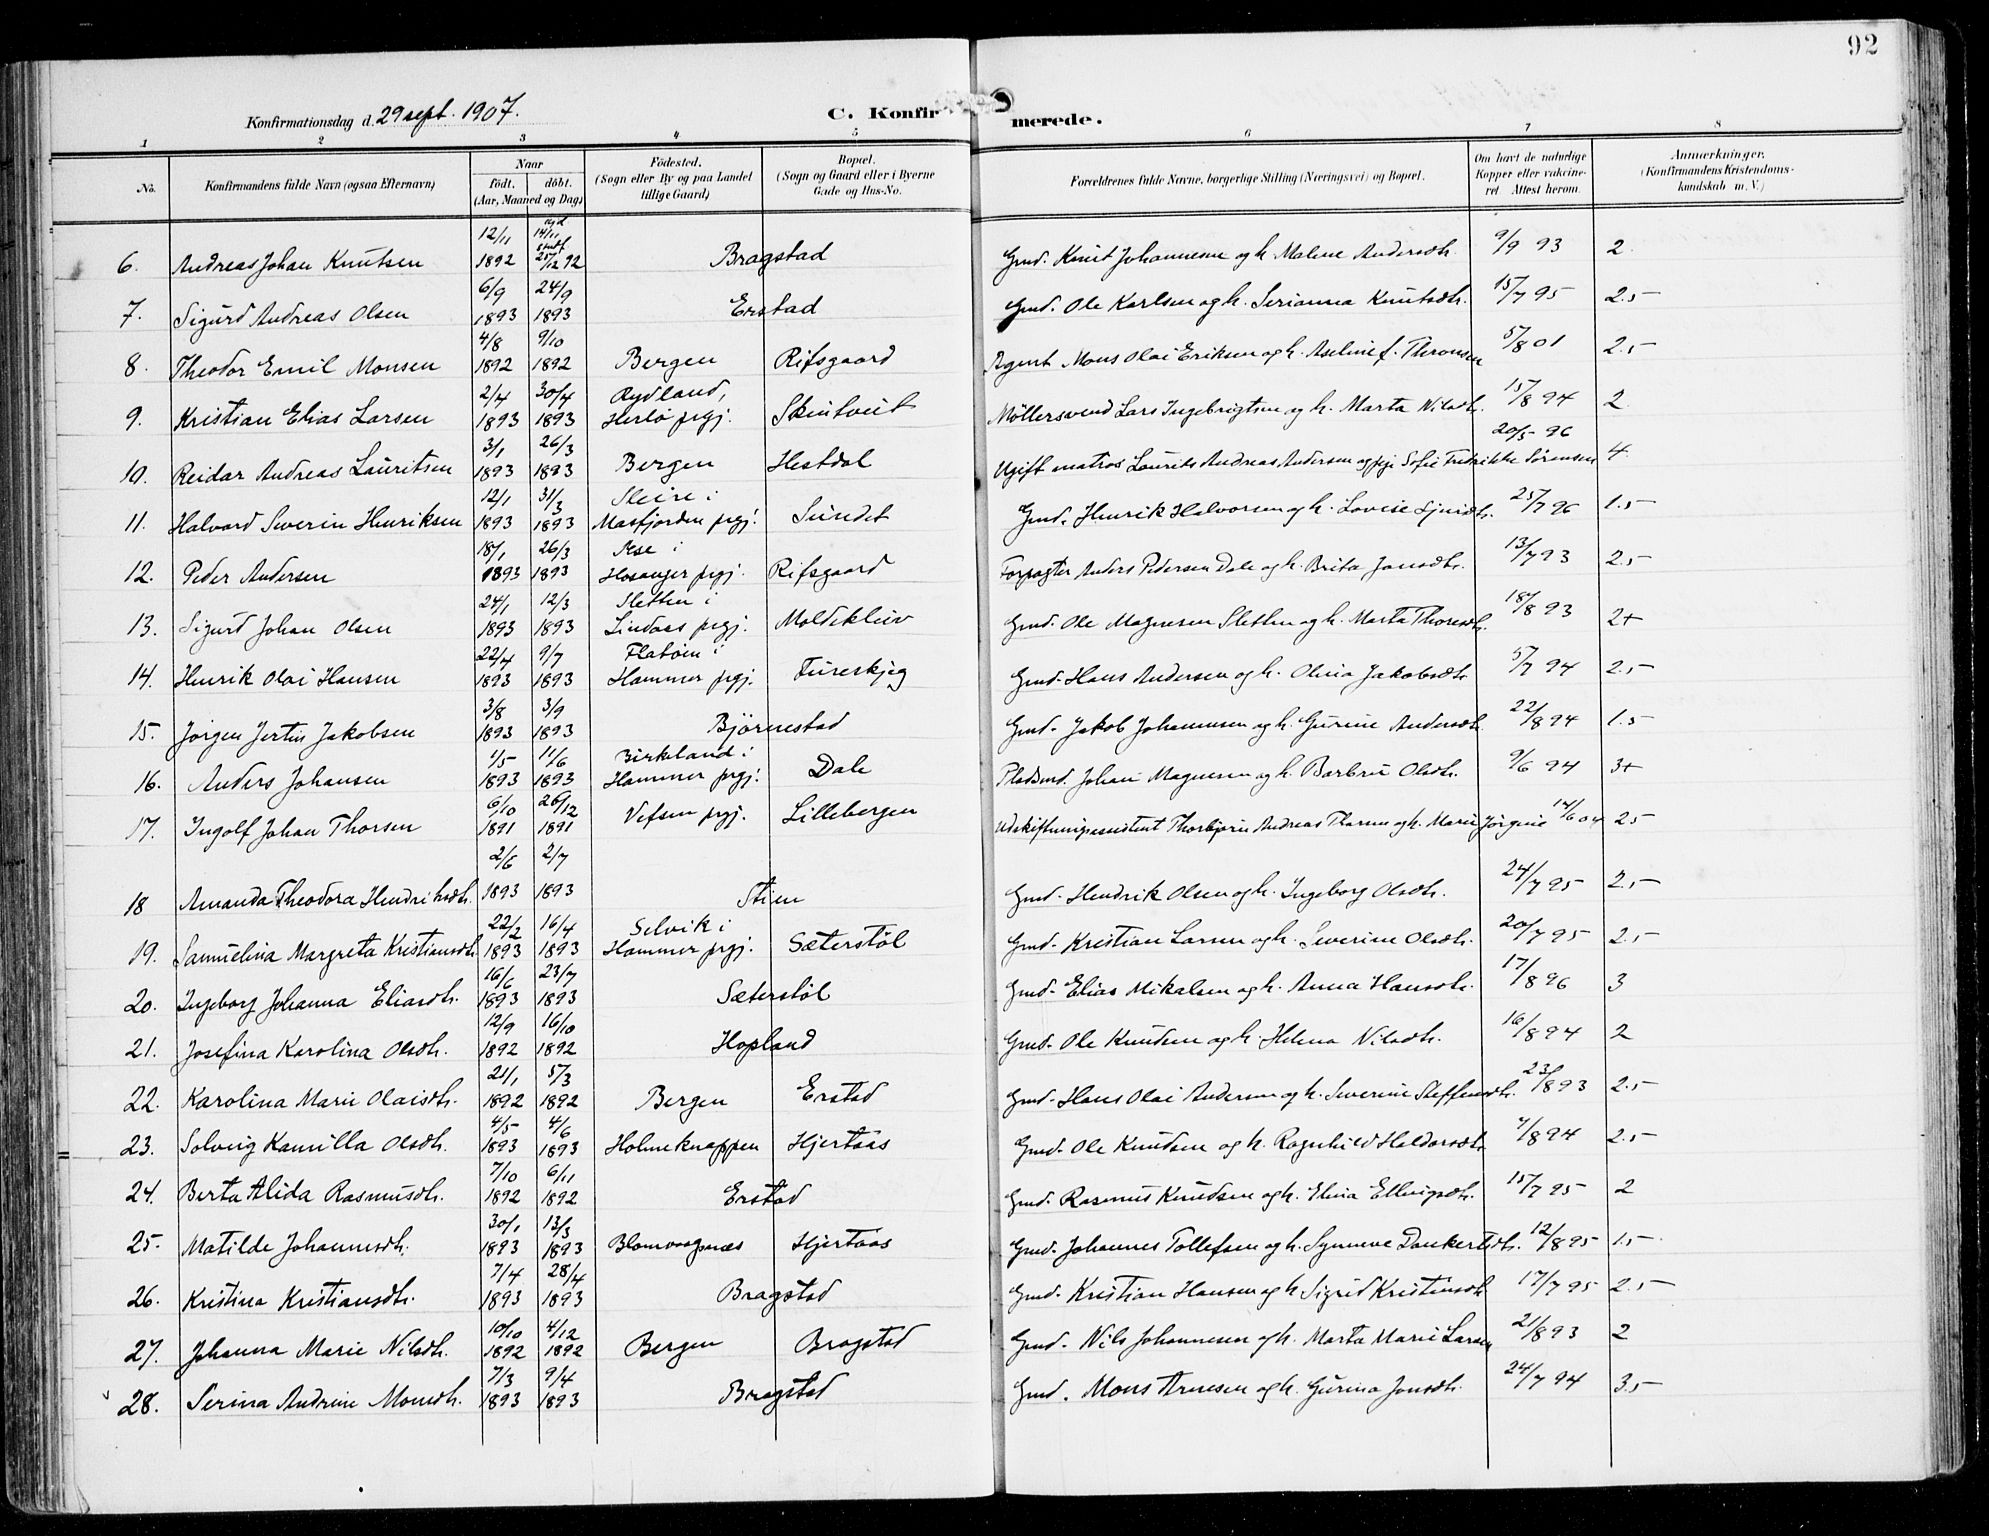 92
Konfirmationsdag d. 29 sept. 1907.
C. Konfirmerede.
1 2 3 4 5 6 7 8
No.
Konfirmandens fulde Navn (ogsaa Efternavn)
Naar
födt. döbt.
(Aar, Maaned og Dag)
Födested.
(Sogn eller By og paa Landet
tillige Gaard)
Bopæl.
(Sogn og Gaard eller i Byerne
Gade og Hus-No.
Forældrenes fulde Navne, borgerlige Stilling (Næringsvei) og Bopæl.
Om havt de naturlige
Kopper eller vakcine-
ret. Attest herom.
Anmærkninger.
(Konfirmandens Kristendoms-
kundskab m. V.)
6. Andreas Johan Knutsen 12/11 1892 14/11 25/12 92 Bragstad Gmd. Knut Johannesen og h. Malene Andersdtr. 9/9 93 2
7. Sigurd Andreas Olsen 6/9 1893 24/9 1893 Erstad Gmd. Ole Karlsen og h. Serianna Knutsdtr. 15/7 95 2.5
8. Theodor Emil Monsen 4/8 1892 9/10 1892 Bergen Rifsgaard Agent Mons Olai Eriksen og h. Aseline f. Thronsen 5/8 01 2.5
9. Kristian Elias Larsen 2/4 1893 30/4 1893 Rydland, Herlø prgj. Skintveit Møllersvend Lars Ingebrigtsen og h. Marta Nilsdtr. 15/8 94 2
10. Reidar Andreas Lauritsen 3/1 1893 26/3 1893 Bergen Hestdal Ugift matros Laurits Andreas Andersen og pige Sofie Fredrikke Sørensen 20/5 96 4
11. Halvard Severin Henriksen 12/1 1893 31/3 1893 Sleire i Masfjorden prgj. Sundet Gmd. Henrik Halvorsen og h. Lovise Sjursdtr. 25/7 96 1.5
12. Peder Andersen 18/1 1893 26/3 1893 i Hosanger prgj. Rifsgaard Forpagter Anders Pedersen Dale og h. Brita Jonsdtr. 13/7 93 2.5
13. Sigurd Johan Olsen 24/1 1893 12/3 1893 Sletten i Lindaas prgj. Moldekleiv Gmd. Ole Magnesen Sletten og h. Marta Thoresdtr. 18/8 93 2+
14. Henrik Olai Hansen 22/4 1893 9/7 1893 Flatøen i Hammer prgj. Fureskjeg Gmd. Hans Andersen og h. Olina Jakobsdtr. 5/7 94 2.5
15. Jørgen Jertin Jakobsen 3/8 1893 3/9 1893 Bjørnestad Gmd. Jakob Johannesen og h. Gurine Andersdtr. 22/8 94 1.5
16. Anders Johansen 1/5 1893 11/6 1893 Birkeland i Hammer prgj. Dale Pladsmd. Johan Magnesen og h. Barbru Olsdtr. 9/6 94 3+
17. Ingolf Johan Thorsen 6/10 1891 26/12 1891 Vefsen prgj. Lillebergen Udskiftningsassistent Thorbjørn Andreas Thorsen og h. Marie Jørgine 14/6 04 2.5
18 Amanda Theodora Hendriksdtr. 2/6 1893 2/7 1893 Stien Gmd. Hendrik Olsen og h. Ingeborg Olsdtr. 24/7 95 2.5
19. Samuelina Margreta Kristiansdtr. 22/2 1893 16/4 1893 Selvik i Hammer prgj. Sæterstøl Gmd. Kristian Larsen og h. Severine Olsdtr. 20/7 95 2.5
20. Ingeborg Johanna Eliasdtr. 16/6 1893 23/7 1893 Sæterstøl Gmd. Elias Mikalsen og h. Anna Hansdtr. 17/8 96 3
21. Josefina Karolina Olsdtr. 12/9 1892 16/10 1892 Hopland Gmd. Ole Knudsen og h. Helena Nilsdtr. 16/8 94 2
22. Karolina Marie Olaisdtr. 21/1 1892 5/3 1892 Bergen Erstad Gmd. Hans Olai Andersen og h. Severine Steffensdtr. 23/8 93 2.5
23. Solveig Kamilla Olsdtr. 4/5 1893 4/6 1893 Holmeknappen Hjertaas Gmd. Ole Knudsen og h. Ragnhild Haldorsdtr. 4/8 94 2.5
24. Berta Alida Rasmusdtr. 7/10 1892 6/11 1892 Erstad Gmd. Rasmus Knudsen og h. Elina Ellingsdtr. 15/7 95 2
25. Matilde Johannesdtr. 30/1 1893 13/3 1893 Blomvaagnæs Hjertaas Gmd. Johannes Tollefsen og h. Synneve Dankertsdtr. 12/8 95 1.5
26. Kristina Kristiansdtr. 7/4 1893 28/4 1893 Bragstad Gmd. Kristian Hansen og h. Sigrid Kristinsdtr. 17/7 95 2.5
27. Johanna Marie Nilsdtr. 10/10 1892 4/12 1892 Bergen Bragstad Gmd. Nils Johannesen og h. Marta Marie Larsen 21/8 93 2
28. Serina Andrine Monsdtr. 7/3 1893 9/4 1893 Bragstad Gmd. Mons Arnesen og h. Gurina Jonsdtr. 24/7 94 3.5